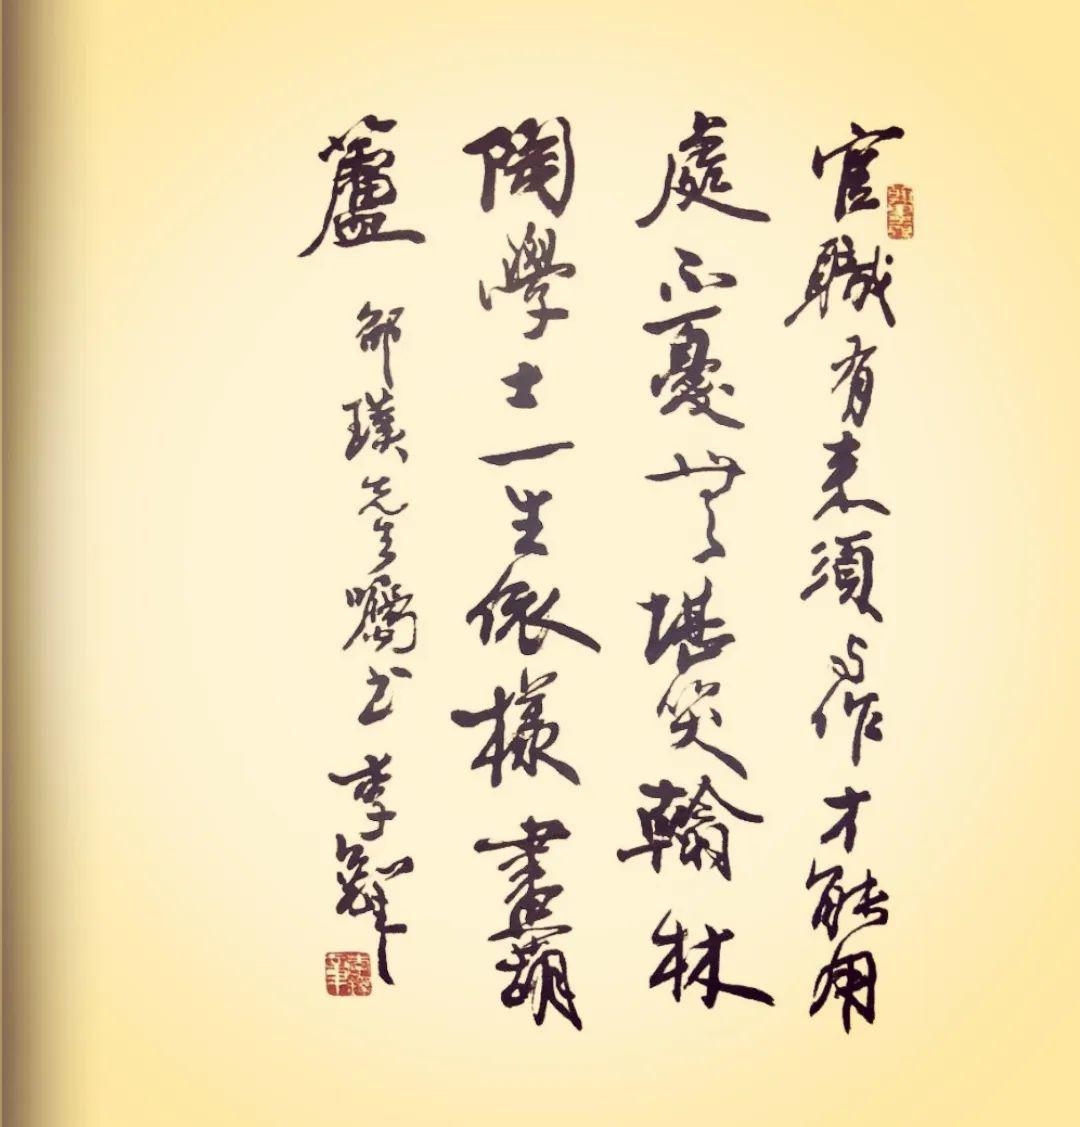 官職有来須与作才能用
處不憂無堪笑翰林
陶學士一生依樣畫葫
蘆 邵璞先生囑书 李鐸